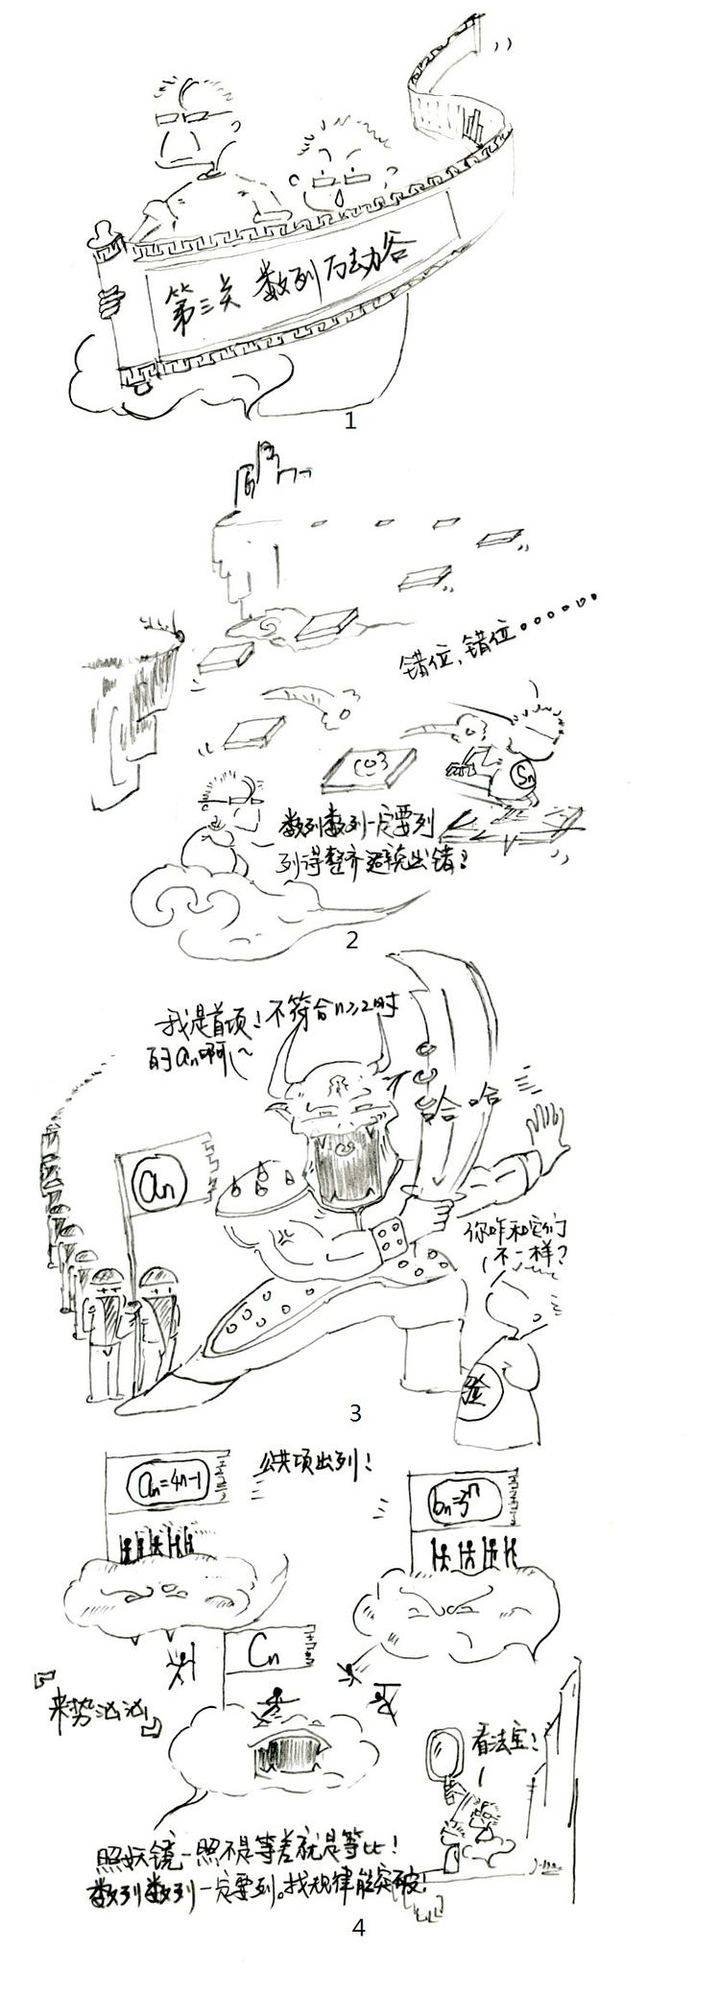 第三关 数列万劫谷
1
错位,错位......
Sn
数列数列一定要列
列得整齐避免出错!
2
我是首项!不符合n≥2时
的an啊~
哈哈
an
你咋和它们
不一样?
验
3
an=4n-1
公共项出列!
bn=3^n
Cn
『来势汹汹』
看法宝!
照妖镜一照不是等差就是等比!
数列数列一定要列。找规律能突破!
4